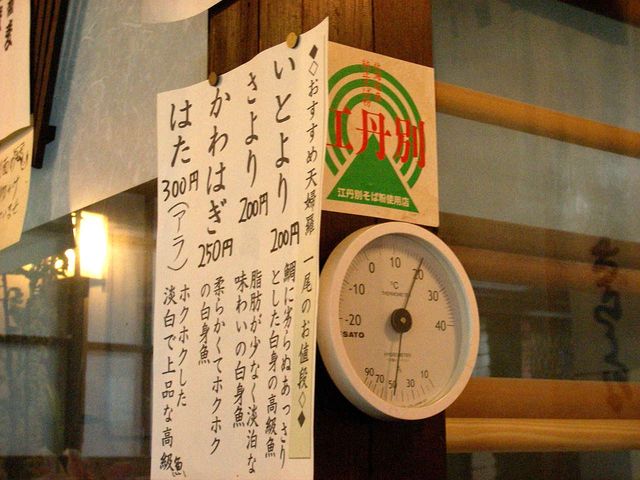 ◆◇おすすめ天婦羅 一尾のお値段◇◆
いとより 200円 鯛に劣らぬあっさりとした白身の高級魚
さより 200円 脂肪が少なく淡泊な味わいの白身魚
かわはぎ 250円 柔らかくてホクホクの白身魚
はた 300円 (アラ) ホクホクした淡白で上品な高級魚
江丹別
江丹別そば粉使用店
-20
-10
0
10
20
30
40
°C
THERMOMETER
SATO
HYGROMETER
90
70
50
30
10